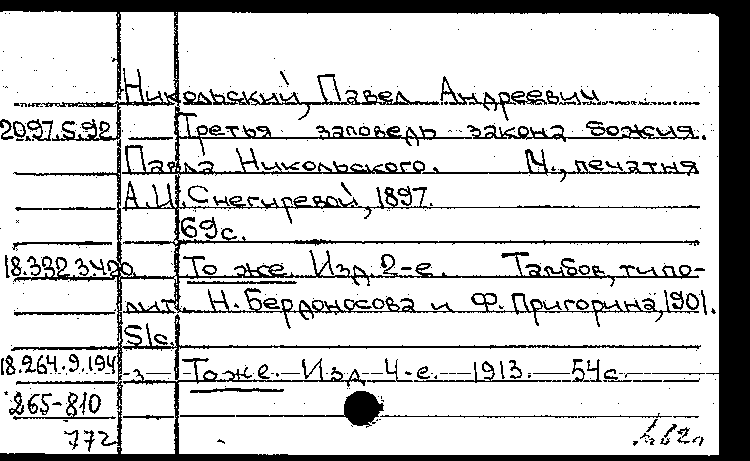 Никольский, Павел Андреевич
2097.5.92 Третья заповедь закона божия.
Павла Никольского. М., печатня
А.И. Снегиревой, 1897.
69с.
То же. Изд. 2-е. Тамбов, типо-
лит. Н. Бердоносова и Ф. Пригорина, 1901.
51с.
18.264.9.194 То же. Изд 4-е. 1913. 54с.
265-810
772